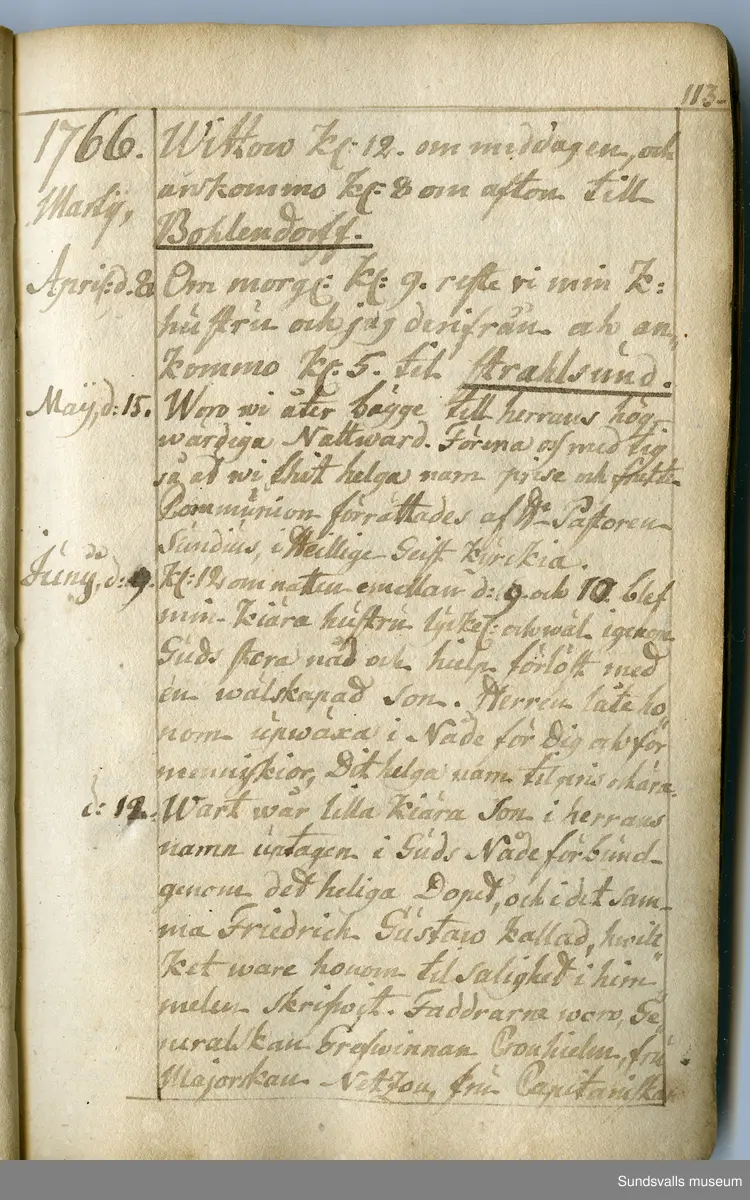 113
1766. Wittow Kl: 12. om middagen, och
Martÿ, ankommo Kl: 8 om afton till
Bohlendorff.
April: d. 8 Om morg: Kl: 9. reste vi min K:
hustru och jag derifrån och an„
kommo Kl: 5. til Strahlsund.
Maÿ, d: 15. Woro wi åter bägge till herrans hög„
wärdiga Nattward. Förena oss med tig
så at wi thit helga namn prise och
Communion förrättades af Hr Pastoren
Sundius, i Heillige Geist Kirckia.
Junÿ, d: 9. Kl: 12 om natten emellan d: 9. och 10. blef
min kiära hustru lyckel: och wäl igenom
Guds stora nåd och hielp förlöst med
en wälskapad son. Herren låte ho„
nom upwäxa i Nåde för dig och för
menniskior, Dit helga namn til pris och ära.
d: 12. Wart wår lilla kiära Son i herrans
namn uptagen i Guds Nåde förbund
genom det heliga Dopet, och i det sam„
ma Friedrich Gustaw kallad, hwil„
ket ware honom til salighet i him„
melen skrifwit. Faddrarne woro, Ge„
neralskan Grefwinnan Cronhielm, fru
Majorskan Netzou, fru Capitainskan
Sundsvalls museum